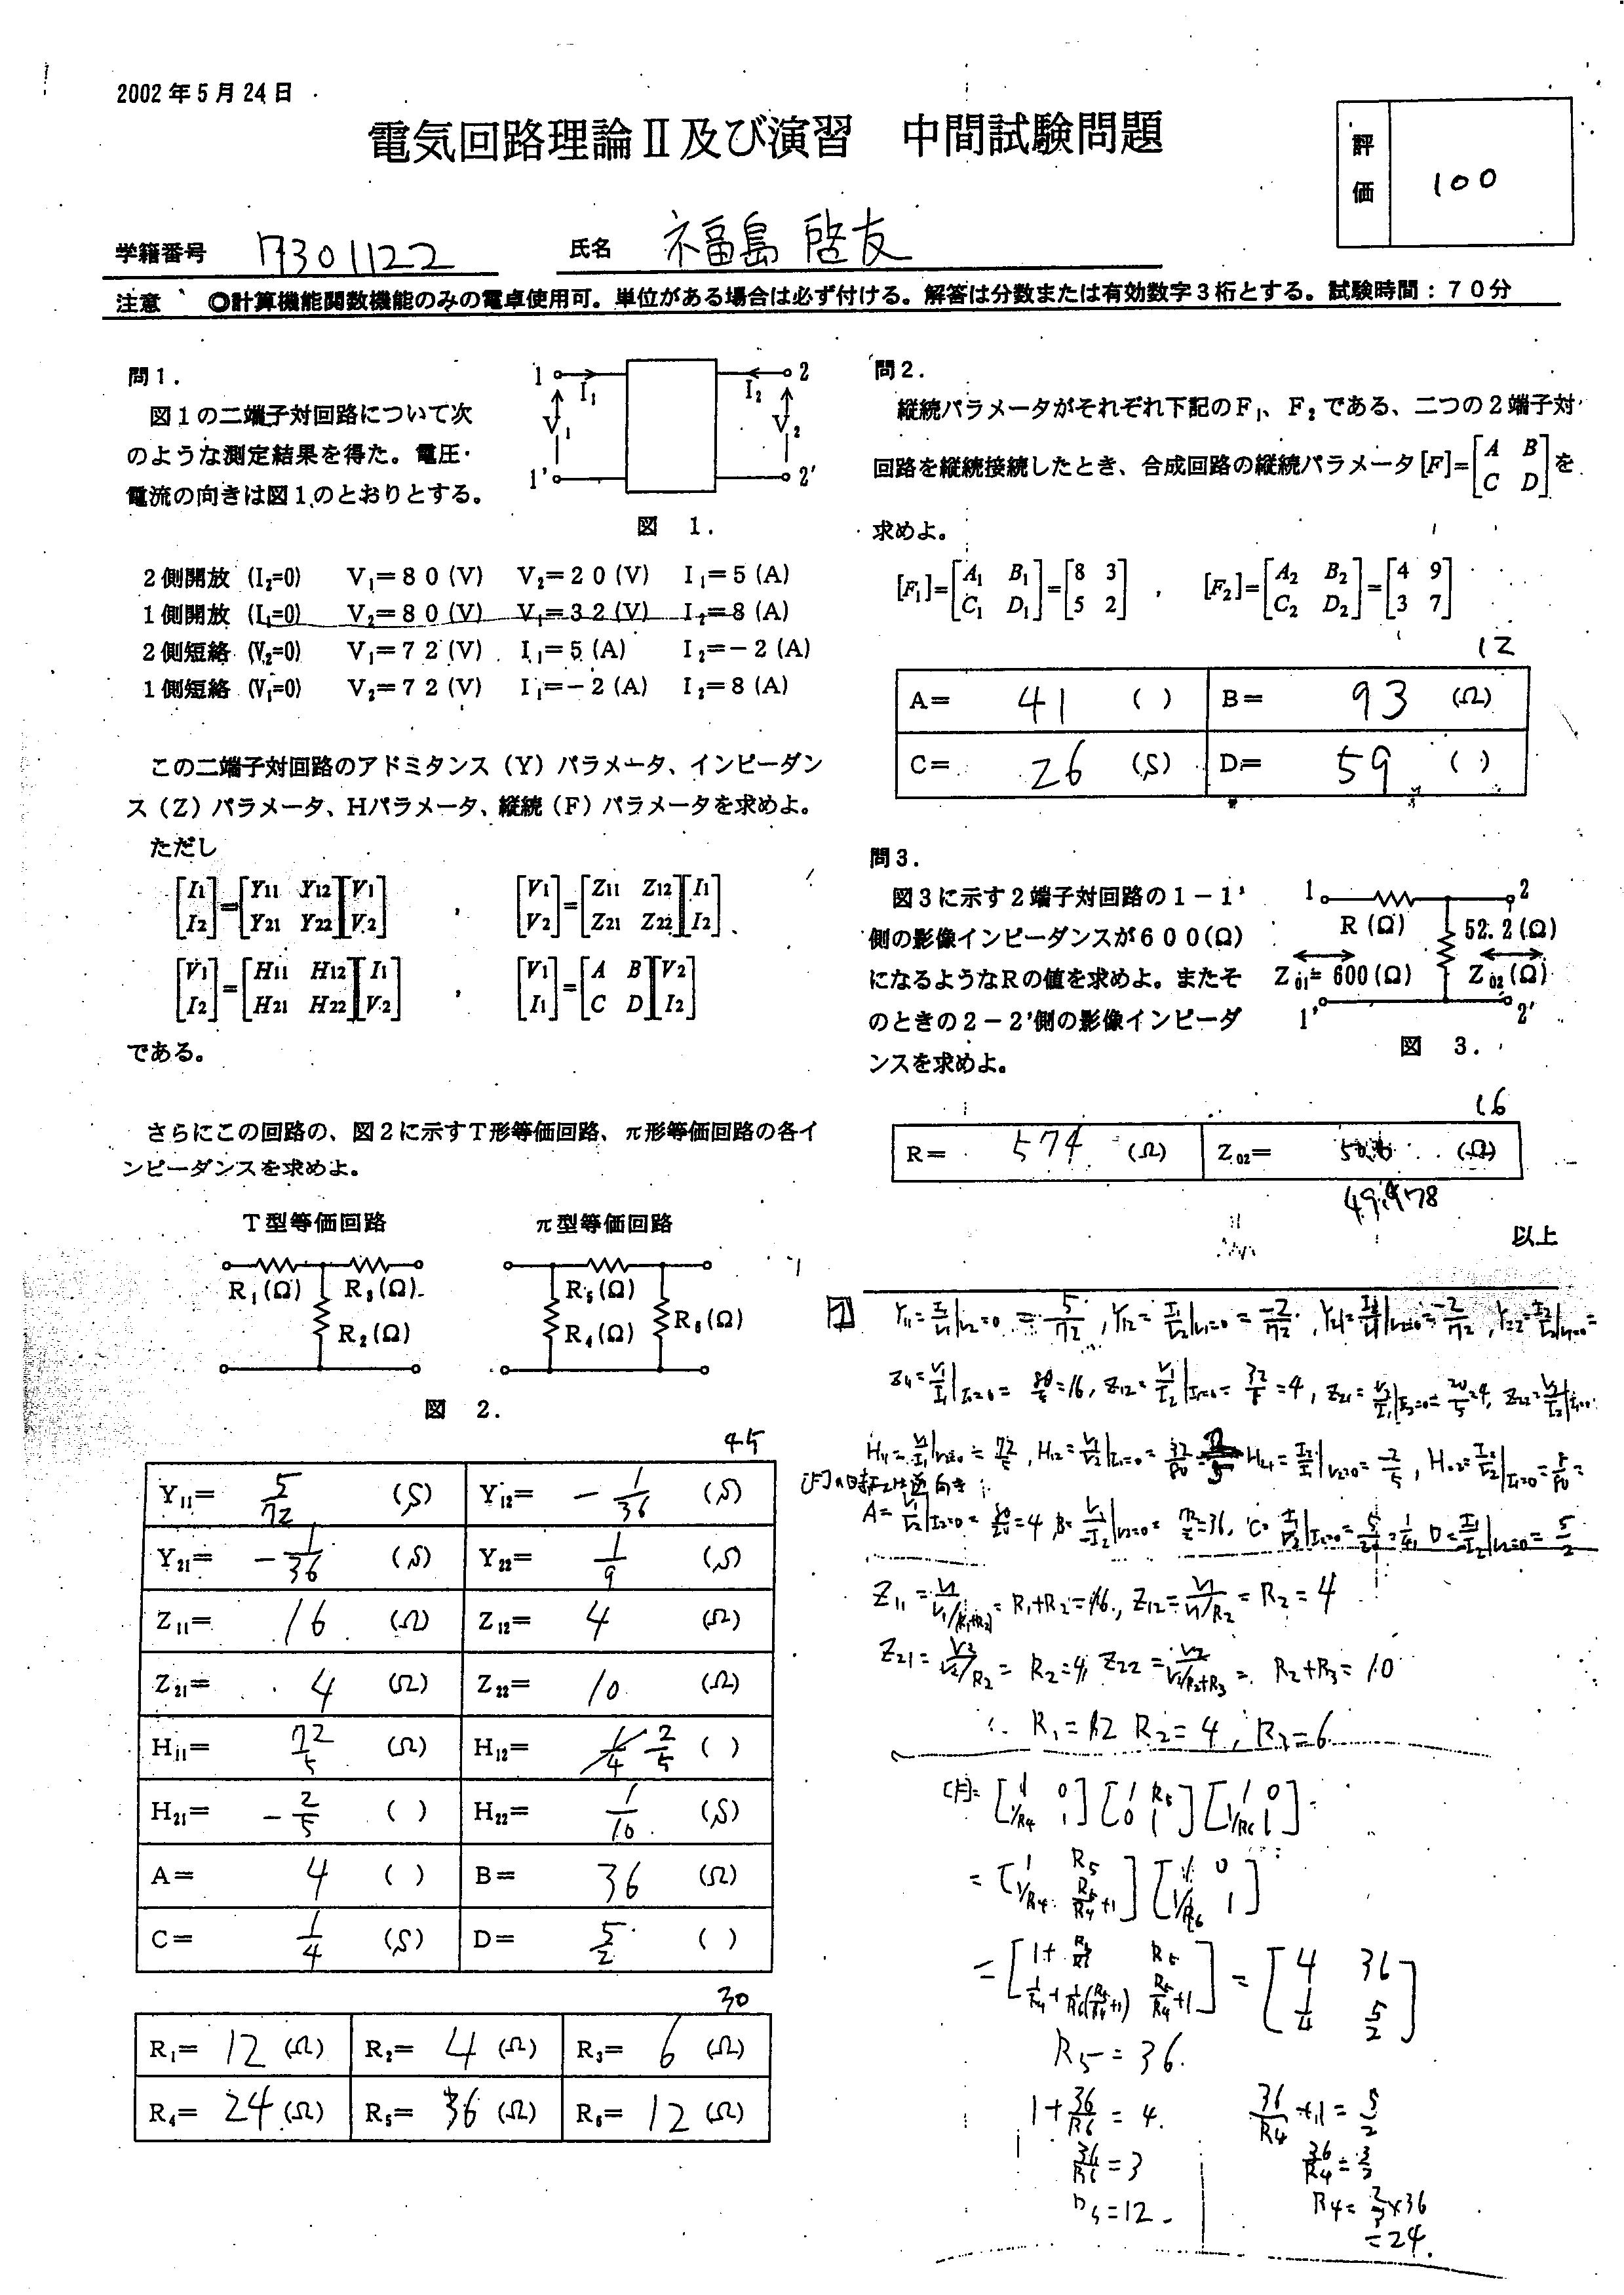 2002年5月24日
電気回路理論Ⅱ及び演習　中間試験問題
評価
100
学籍番号 7301122 氏名 福島 啓友
注意 ◎計算機能関数機能のみの電卓使用可。単位がある場合は必ず付ける。解答は分数または有効数字3桁とする。試験時間：70分
問1.
図1の二端子対回路について次
のような測定結果を得た。電圧・
電流の向きは図1のとおりとする。
1 I₁ I₂ 2
V₁ V₂
1' 2'
図 1.
2側開放 (I₂=0) V₁=80(V) V₂=20(V) I₁=5(A)
1側開放 (I₁=0) V₂=80(V) V₁=32(V) I₂=8(A)
2側短絡 (V₂=0) V₁=72(V) I₁=5(A) I₂=-2(A)
1側短絡 (V₁=0) V₂=72(V) I₁=-2(A) I₂=8(A)
この二端子対回路のアドミタンス（Y）パラメータ、インピーダン
ス（Z）パラメータ、Hパラメータ、縦続（F）パラメータを求めよ。
ただし
[I1 I2]=[Y11 Y12 Y21 Y22][V1 V2] , [V1 V2]=[Z11 Z12 Z21 Z22][I1 I2]、
[V1 I2]=[H11 H12 H21 H22][I1 V2] , [V1 I1]=[A B C D][V2 I2]
である。
さらにこの回路の、図2に示すT形等価回路、π形等価回路の各イ
ンピーダンスを求めよ。
T型等価回路 π型等価回路
R₁(Ω) R₃(Ω) R₅(Ω)
R₂(Ω) R₄(Ω) R₆(Ω)
図 2.
45
Y₁₁= 5/72 (S) Y₁₂= -1/36 (S)
Y₂₁= -1/36 (S) Y₂₂= 1/9 (S)
Z₁₁= 16 (Ω) Z₁₂= 4 (Ω)
Z₂₁= 4 (Ω) Z₂₂= 10 (Ω)
H₁₁= 72/5 (Ω) H₁₂= 1/4 2/5 ( )
H₂₁= -2/5 ( ) H₂₂= 1/10 (S)
A= 4 ( ) B= 36 (Ω)
C= 1/4 (S) D= 5/2 ( )
30
R₁= 12 (Ω) R₂= 4 (Ω) R₃= 6 (Ω)
R₄= 24 (Ω) R₅= 36 (Ω) R₆= 12 (Ω)
問2.
縦続パラメータがそれぞれ下記のF₁、F₂である、二つの2端子対
回路を縦続接続したとき、合成回路の縦続パラメータ[F]=[A B C D]を
求めよ。
[F₁]=[A₁ B₁ C₁ D₁]=[8 3 5 2] , [F₂]=[A₂ B₂ C₂ D₂]=[4 9 3 7]
12
A= 41 ( ) B= 93 (Ω)
C= 26 (S) D= 59 ( )
問3.
図3に示す2端子対回路の1-1'
側の影像インピーダンスが600(Ω)
になるようなRの値を求めよ。またそ
のときの2-2'側の影像インピーダ
ンスを求めよ。
1 2
R(Ω) 52.2(Ω)
Z₀₁=600(Ω) Z₀₂(Ω)
1' 2'
図 3.
16
R= 574 (Ω) Z₀₂= (Ω)
以上
Y₁₁=I₁/V₁|V₂=0 = 5/72, Y₁₂=I₁/V₂|V₁=0 = -2/72, Y₂₁=I₂/V₁|V₂=0 = -2/72, Y₂₂=I₂/V₂|V₁=0 =
Z₁₁=V₁/I₁|I₂=0 = 80/5=16, Z₁₂=V₁/I₂|I₁=0 = 32/8=4, Z₂₁=V₂/I₁|I₂=0 = 20/5=4, Z₂₂=V₂/I₂|I₁=0
H₁₁=V₁/I₁|V₂=0 = 72/5, H₁₂=V₁/V₂|I₁=0 = 32/80 H₂₁=I₂/I₁|V₂=0 = -2/5, H₂₂=I₂/V₂|I₁=0 = 8/80 =
[F]の時I₂は逆向き
A=V₁/V₂|I₂=0 = 80/20=4 B=V₁/-I₂|V₂=0 = 72/2=36, C=I₁/V₂|I₂=0 = 5/20=1/4, D=I₁/-I₂|V₂=0 = 5/2
Z₁₁=V₁/(V₁/(R₁+R₂))=R₁+R₂=16, Z₁₂=V₁/(V₁/R₂)=R₂=4
Z₂₁=V₂/(V₂/R₂)=R₂=4, Z₂₂=V₂/(V₂/R₂+R₃)=R₂+R₃=10
∴ R₁=12 R₂=4, R₃=6
[F]=[1 0 1/R₄ 1][1 R₅ 0 1][1 0 1/R₆ 1]
=[1 R₅ 1/R₄ R₅/R₄+1][1 0 1/R₆ 1]
=[1+R₅/R₆ R₅ 1/R₄+1/R₆(R₅/R₄+1) R₅/R₄+1]=[4 36 1/4 5/2]
R₅=36.
1+36/R₆=4. 36/R₄+1=5/2
36/R₆=3 36/R₄=3/2
=12. R₄=2/3×36
=24.